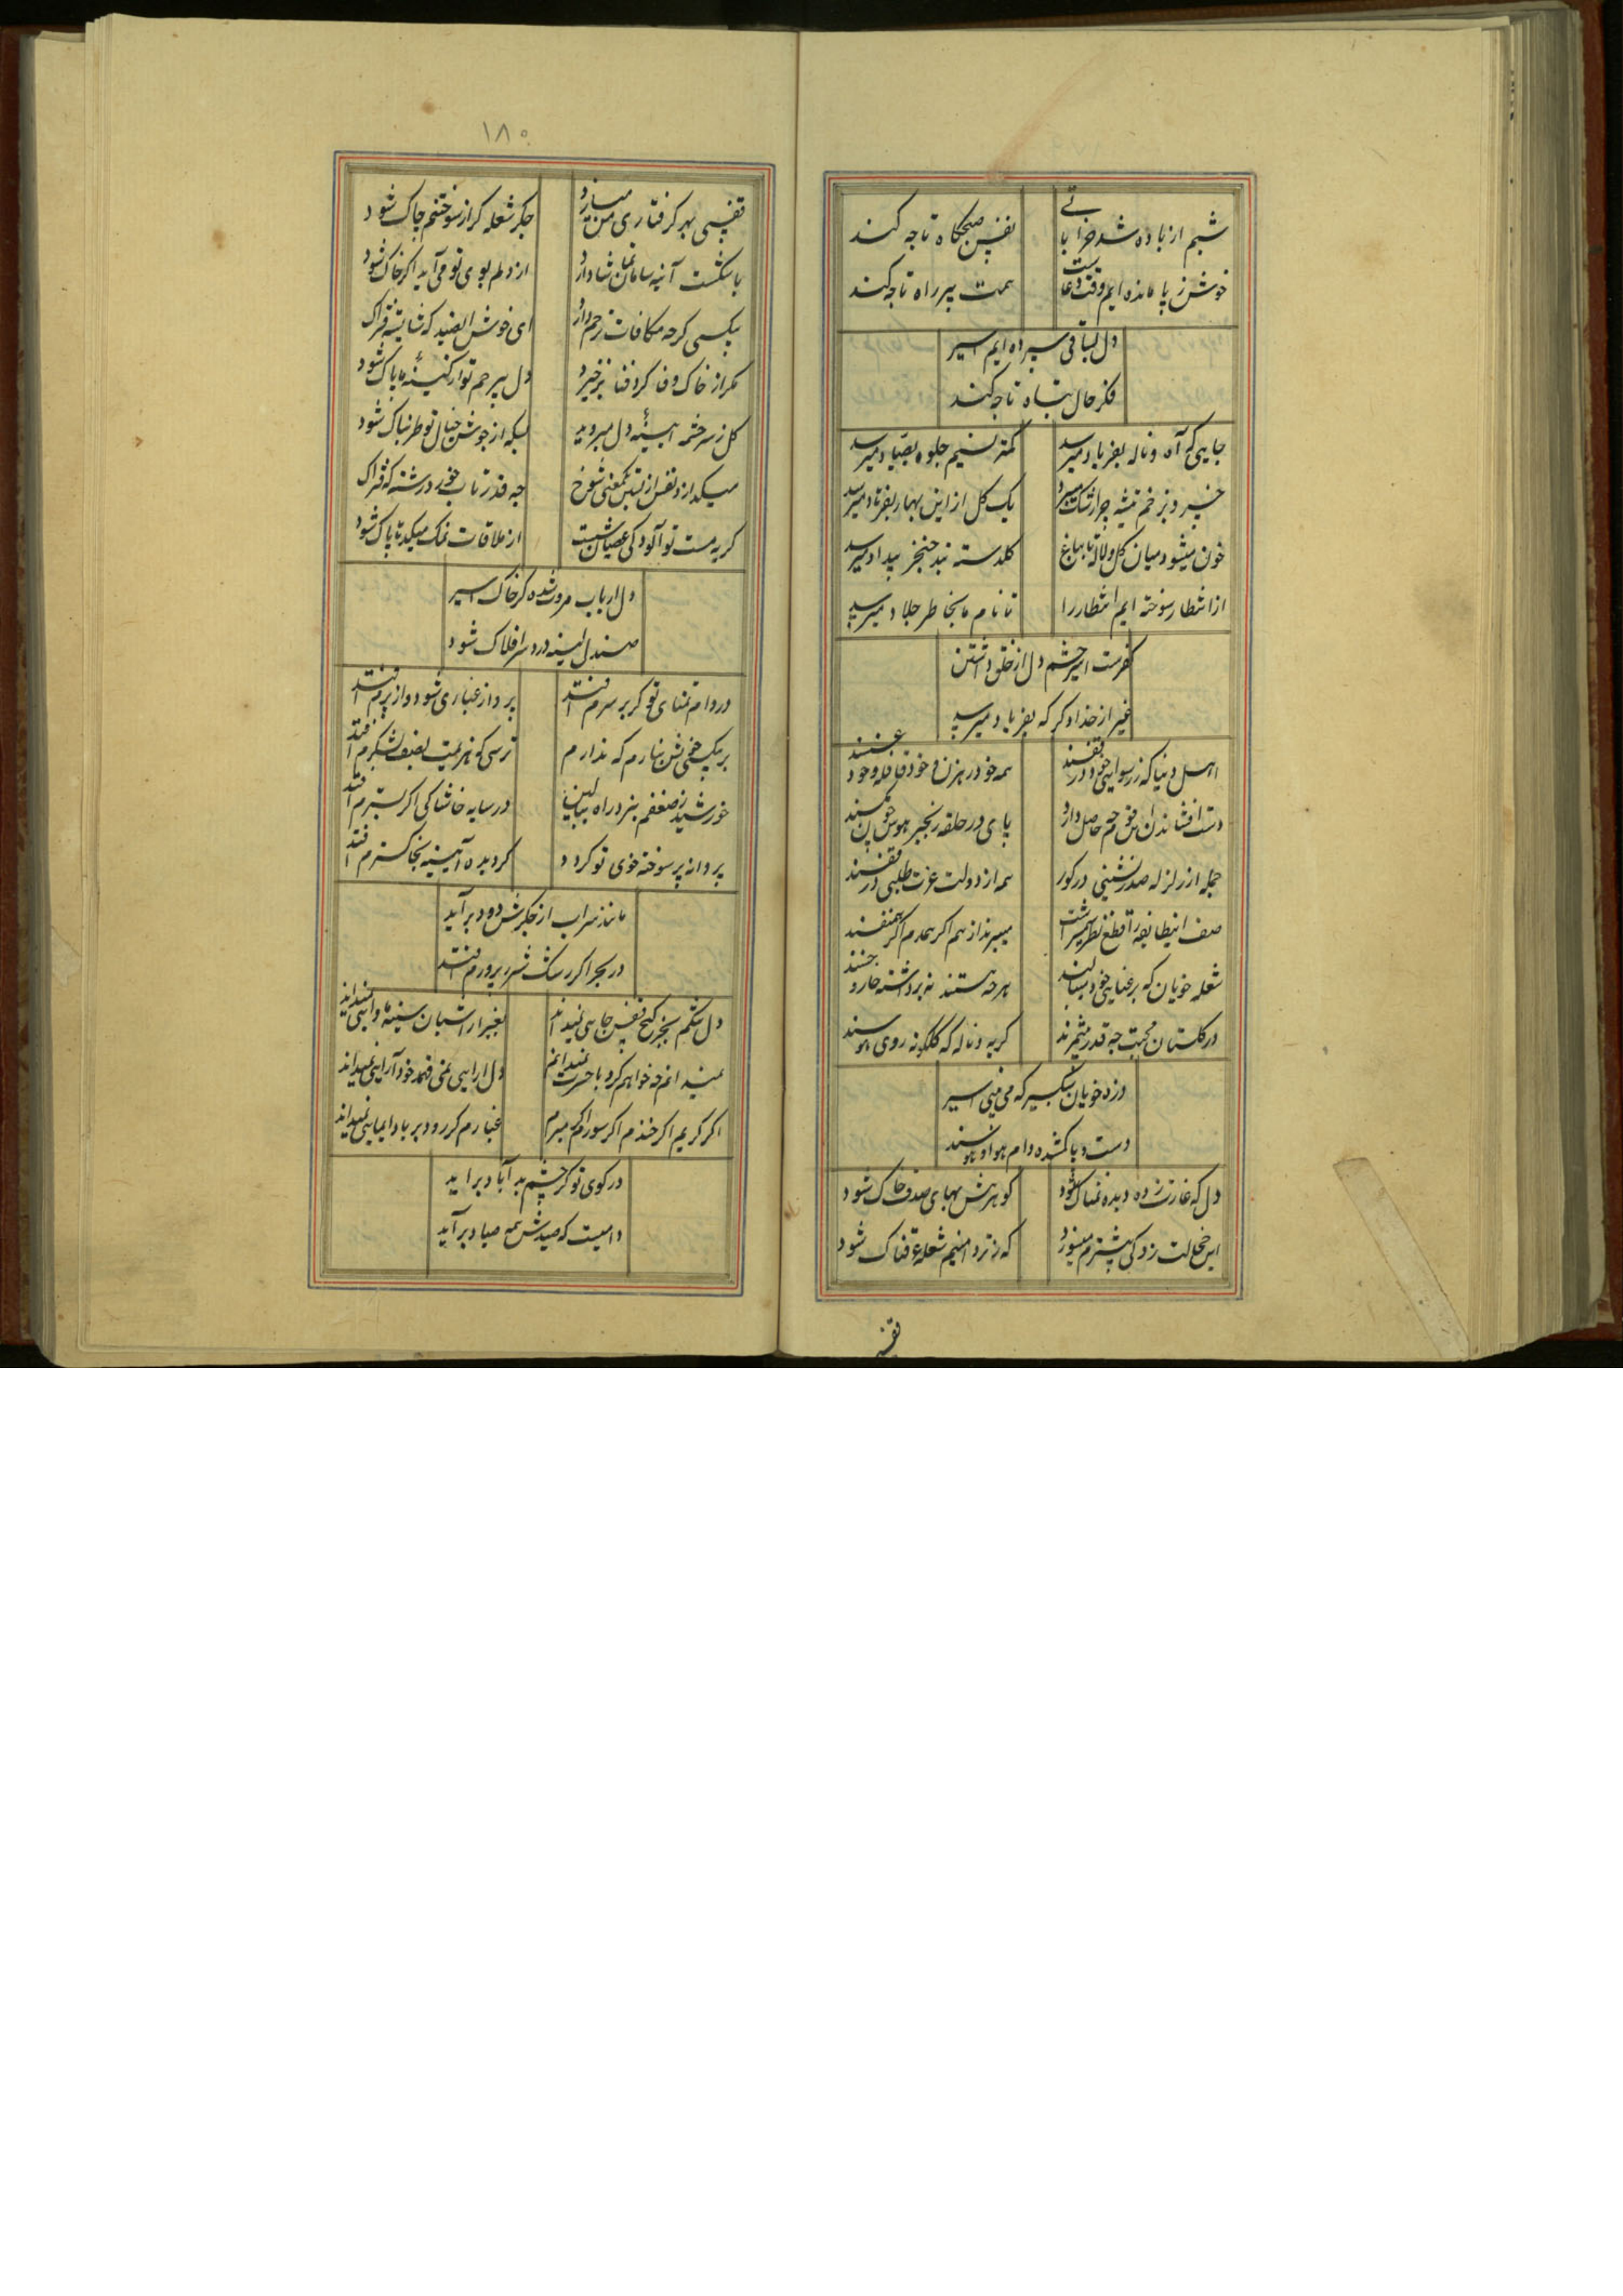 شبم از باده شد خراباتی
نفس صبحگاه تا چه کند
خوش ز پا مانده ایم وقت دعاست
همت پیر راه تا چه کند
دل بساقی سپرده ایم اسیر
فکر حال تباه تا چه کند
جایی که آه و ناله بفریاد میرسد
کمتر نسیم جلوه بصیاد میرسد
خسرو ز زخم تیشه چرا رشک میبرد
یک گل از این بهار بفرهاد میرسد
خون میشود میان گل و لاله تا بباغ
گلدسته بند خنجر بیداد میرسد
از انتظار سوخته ایم انتظار را
تا نام ما بخاطر جلاد میرسد
کفرست اسیر چشم دل از خلق داشتن
غیر از خدا دگر که بفریاد میرسد
اهل دنیا که ز رسوایی خود در قفسند
همه خود رهزن و خود قافله و خود عسسند
دست افشاندن این قوم چه حاصل دارد
پای در حلقه زنجیر هوس چون مگسند
جمله از زلزله صدرنشینی در گور
همه از دولت عزت طلبی در قفسند
صف این طایفه را قطع نظر شمشیر است
میبرند از هم اگر همدم اگر همنفسند
شعله خویان که برعنایی خود میبالند
هر چه هستند نه برداشته خار و خسند
در گلستان محبت چه قدر بی ثمرند
گریه و ناله که گلگونه روی هوسند
دزد خویان سبکسیر که می بینی اسیر
دست و پا گمشده دام هوا و هوسند
دل که غارت زده دیده نمناک شود
گوهرش بهای صدف خاک شود
این خجالت زدگی بیشترم میسوزد
که ز تردامنیم شعله عرقناک شود
قفس
۱۸۰
قفسی بهر گرفتاری من میسازد
جگر شعله گر از سوختنم چاک شود
با شکست آینه سامان تماشا دارد
از دلم بوی تو می آید اگر خاک شود
بیکسی گر چه مکافات ترحم دارد
ای خوش آن صید که شایسته فتراک شود
مگر از خاک وفا گرد فنا برخیزد
دل بیرحم تو از کینه ما پاک شود
گل ز سرچشمه آیینه دل میروید
بسکه از جوش خیال تو طربناک شود
میگدازد نفس از بستن معنی شوخ
چه قدر تاب خورد رشته که فتراک شود
گریه مست تو آلودگی عصیان شست
از ملاقات نمک میکده تا پاک شود
دل ارباب مروت شده گر خاک اسیر
صندل آینه درد سر افلاک شود
در دام تمنای تو گر بر سرم افتد
پرواز غباری شود و از پرم افتد
بر یکجهتی نشو نیارم که ندارم
ترسی که هزیمت بصف لشکرم افتد
خورشید ز ضعفم نبرد راه ببالین
در سایه خاشاکی اگر بسترم افتد
پروانه پر سوخته خوی تو گردد
گر دیده آیینه بخاکسترم افتد
مانند سراب از جگرش دود برآید
در بحر اگر رشک شرر پرورم افتد
دل تنگم بجز کنج قفس جایی نمیداند
بغیر از آشیان سینه مأوایی نمیداند
نمیدانم چه خواهم کرد با حسرت نمیدانم
دل آرایی نمی فهمد خودآرایی نمیداند
اگر گریم اگر خندم اگر سوزم اگر میرم
غبارم گر رود بر باد ایمایی نمیداند
در کوی تو گر چشم به آباد برآید
دامیست که صیدش همه صیاد برآید